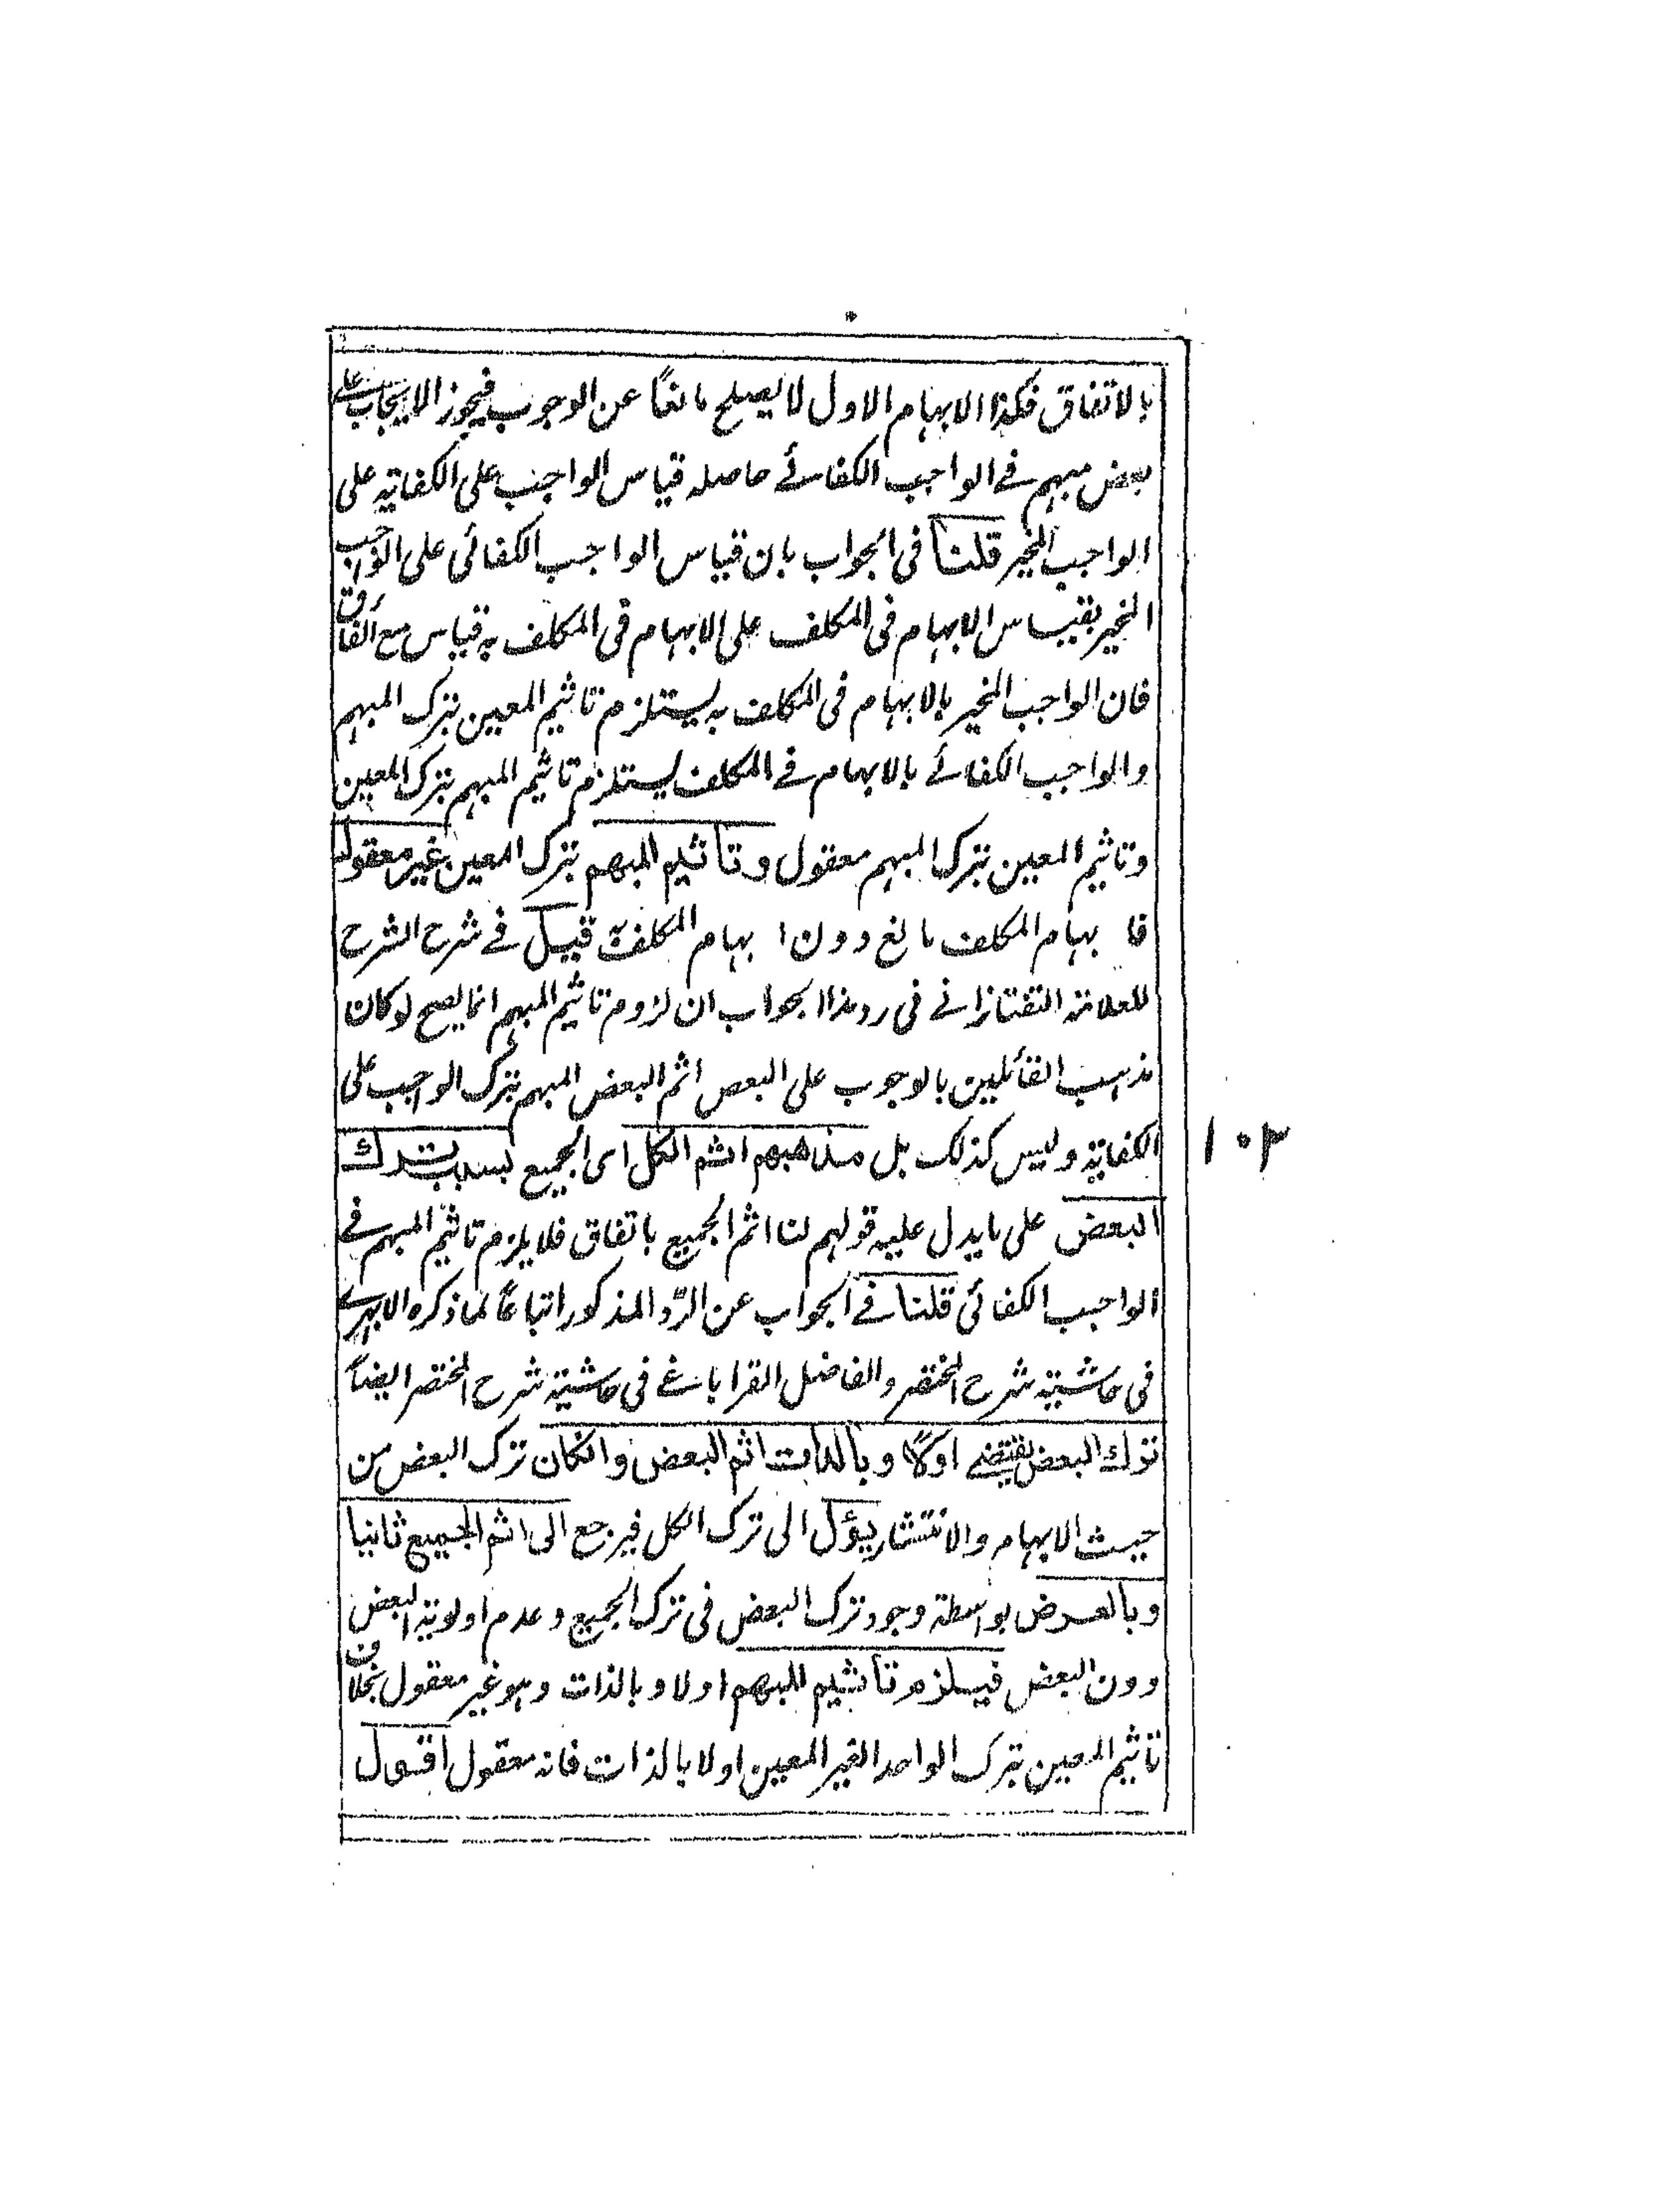 بالاتفاق فكذا الابهام الاول لا يصلح مانعًا عن الوجوب فيجوز الايجاب على
بعض مبهم فے الواجب الكفائے حاصله قياس الواجب على الكفاية على
الواجب المخير قلنا فى الجواب بان قياس الواجب الكفائى على الواجب
المخير بقياس الابهام فى المكلف على الابهام فى المكلف به قياس مع الفارق
فان الواجب المخير بالابهام فى المكلف به يستلزم تاثيم المعين بترك المبهم
والواجب الكفائے بالابهام فے المكلف يستلزم تاثيم المبهم بترك المعين
وتاثيم المعين بترك المبهم معقول وتأثيم المبهم بترك المعين غير معقول
فا بهام المكلف مانع دون ا بهام المكلف به قيل فے شرح الشرح
للعلامة التفتازانے فى رد هذا الجواب ان لزوم تاثيم المبهم انما يصح لو كان
مذهب القائلين بالوجوب على البعض اثم البعض المبهم بترك الواجب على
الكفاية وليس كذلك بل مذهبهم اثم الكل اى الجميع بسبب ترك
البعض على ما يدل عليه قولهم لنا اثم الجميع باتفاق فلا يلزم تاثيم المبهم فے
الواجب الكفائى قلنا فے الجواب عن الرّد المذكور اتباعًا لما ذكره الابهرے
فى حاشية شرح المختصر والفاضل القرا باغے فى حاشية شرح المختصر ايضاً
ترك البعض يقتضے اولًا وبالذات اثم البعض وانكان ترك البعض من
حيث الابهام والانتشار يؤل الى ترك الكل فيرجع الى اثم الجميع ثانيا
وبالعرض بواسطة وجود ترك البعض فى ترك الجميع وعدم اولوية البعض
دون البعض فيلزم تأثيم المبهم اولا وبالذات وهو غير معقول بخلاف
تاثيم المعين بترك الواحد الغير المعين اولا بالذات فانه معقول اقول
١٠٣